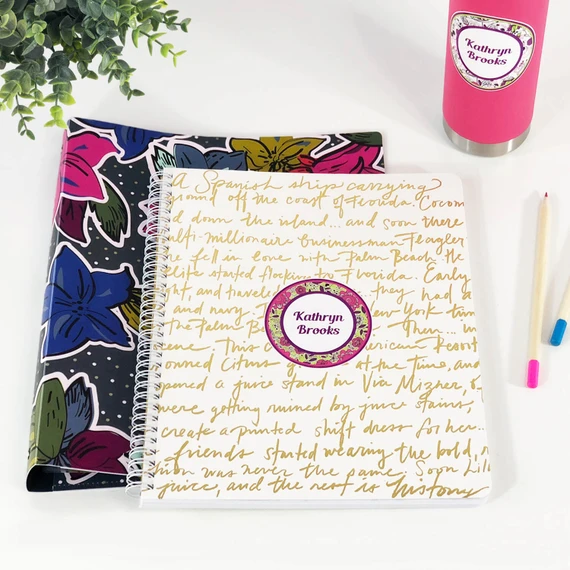 Kathryn
Brooks
A Spanish ship carrying
ground off the coast of Florida Cocon
d down the island... and soon there
ulti-millionaire businessman Flagler
re fell in love with Palm Beach, the
Elite started flocking to Florida. Early
ght, and traveled they had a
and navy. New York tim
the Palm B then... in
ene. This c American Resort
owned Citrus g at the time, and
pened a juice stand in Via Mizner, o
were getting ruined by juice stains,
create a printed shift dress for her...
friends started wearing the bold,
hion was never the same. Soon Lil
juice, and the rest is history
Kathryn
Brooks